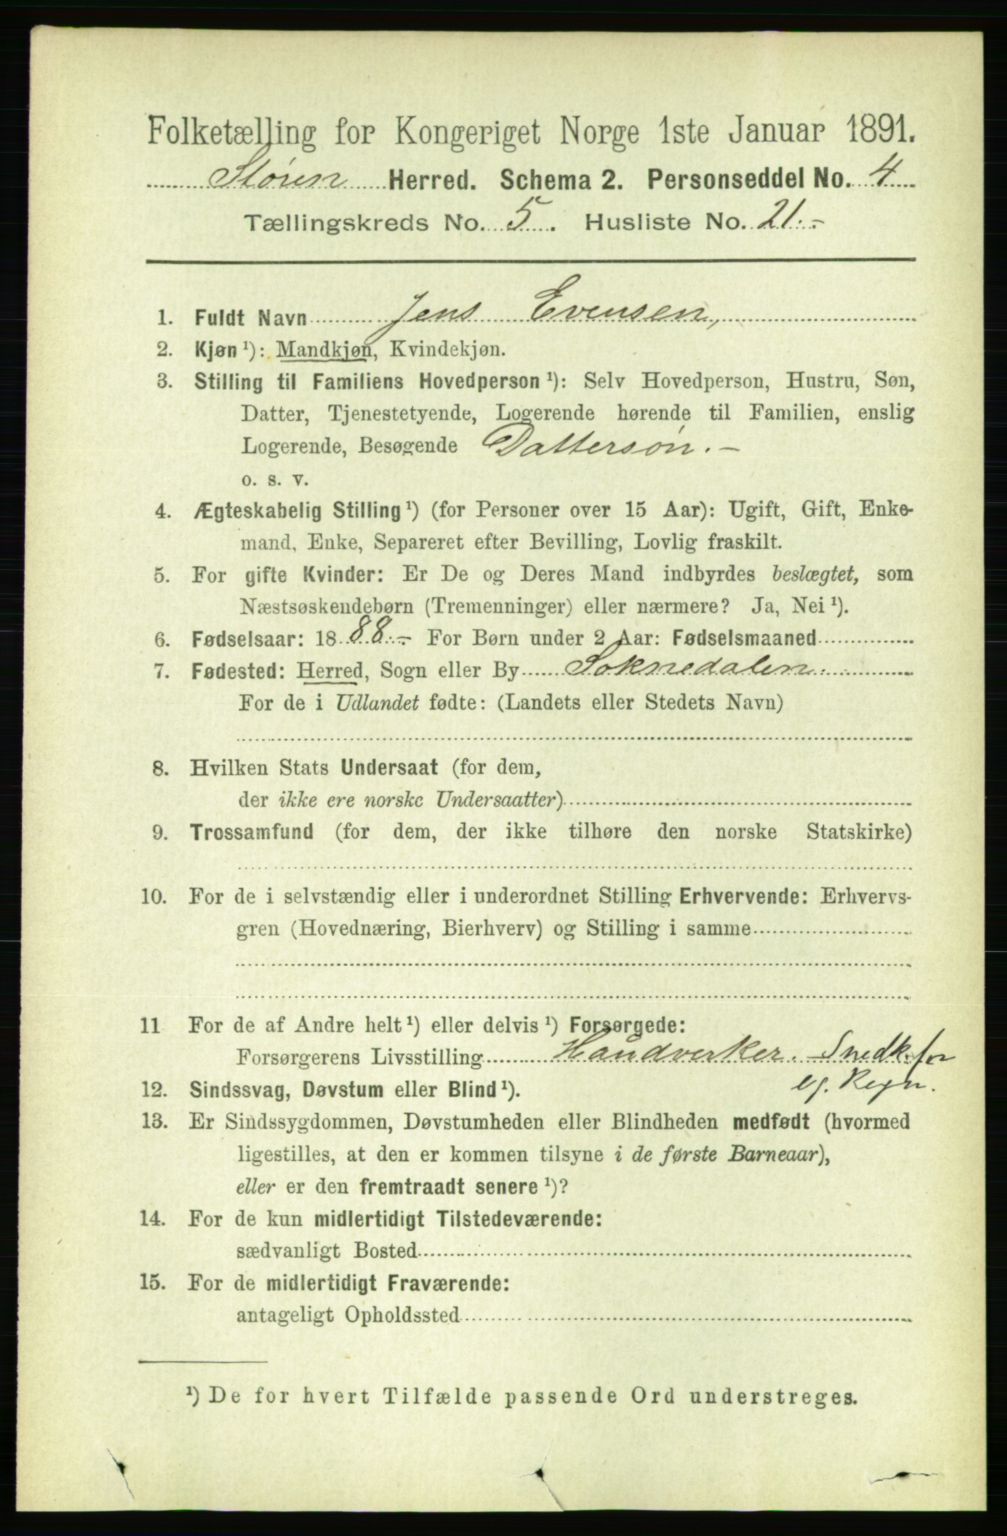 Folketælling for Kongeriget Norge 1ste Januar 1891.
Støren Herred. Schema 2. Personseddel No. 4
Tællingskreds No. 5. Husliste No. 21.-
1. Fuldt Navn Jens Evensen,
2. Kjøn ¹): Mandkjøn, Kvindekjøn.
3. Stilling til Familiens Hovedperson ¹): Selv Hovedperson, Hustru, Søn,
Datter, Tjenestetyende, Logerende hørende til Familien, enslig
Logerende, Besøgende Dattersøn.-
o. s. v.
4. Ægteskabelig Stilling ¹) (for Personer over 15 Aar): Ugift, Gift, Enke-
mand, Enke, Separeret efter Bevilling, Lovlig fraskilt.
5. For gifte Kvinder: Er De og Deres Mand indbyrdes beslægtet, som
Næstsøskendebørn (Tremenninger) eller nærmere? Ja, Nei ¹).
6. Fødselsaar: 1888.- For Børn under 2 Aar: Fødselsmaaned
7. Fødested: Herred, Sogn eller By Soknedalen.
For de i Udlandet fødte: (Landets eller Stedets Navn)
8. Hvilken Stats Undersaat (for dem,
der ikke ere norske Undersaatter)
9. Trossamfund (for dem, der ikke tilhøre den norske Statskirke)
10. For de i selvstændig eller i underordnet Stilling Erhvervende: Erhvervs-
gren (Hovednæring, Bierhverv) og Stilling i samme
11 For de af Andre helt ¹) eller delvis ¹) Forsørgede:
Forsørgerens Livsstilling Håndverker. Snedk. for
eg. Regn.
12. Sindssvag, Døvstum eller Blind ¹).
13. Er Sindssygdommen, Døvstumheden eller Blindheden medfødt (hvormed
ligestilles, at den er kommen tilsyne i de første Barneaar),
eller er den fremtraadt senere ¹)?
14. For de kun midlertidigt Tilstedeværende:
sædvanligt Bosted
15. For de midlertidigt Fraværende:
antageligt Opholdssted
¹) De for hvert Tilfælde passende Ord understreges.